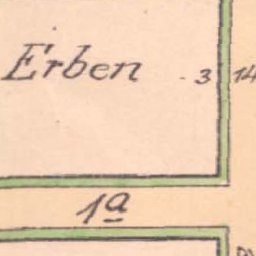 Erben 3 14
1a